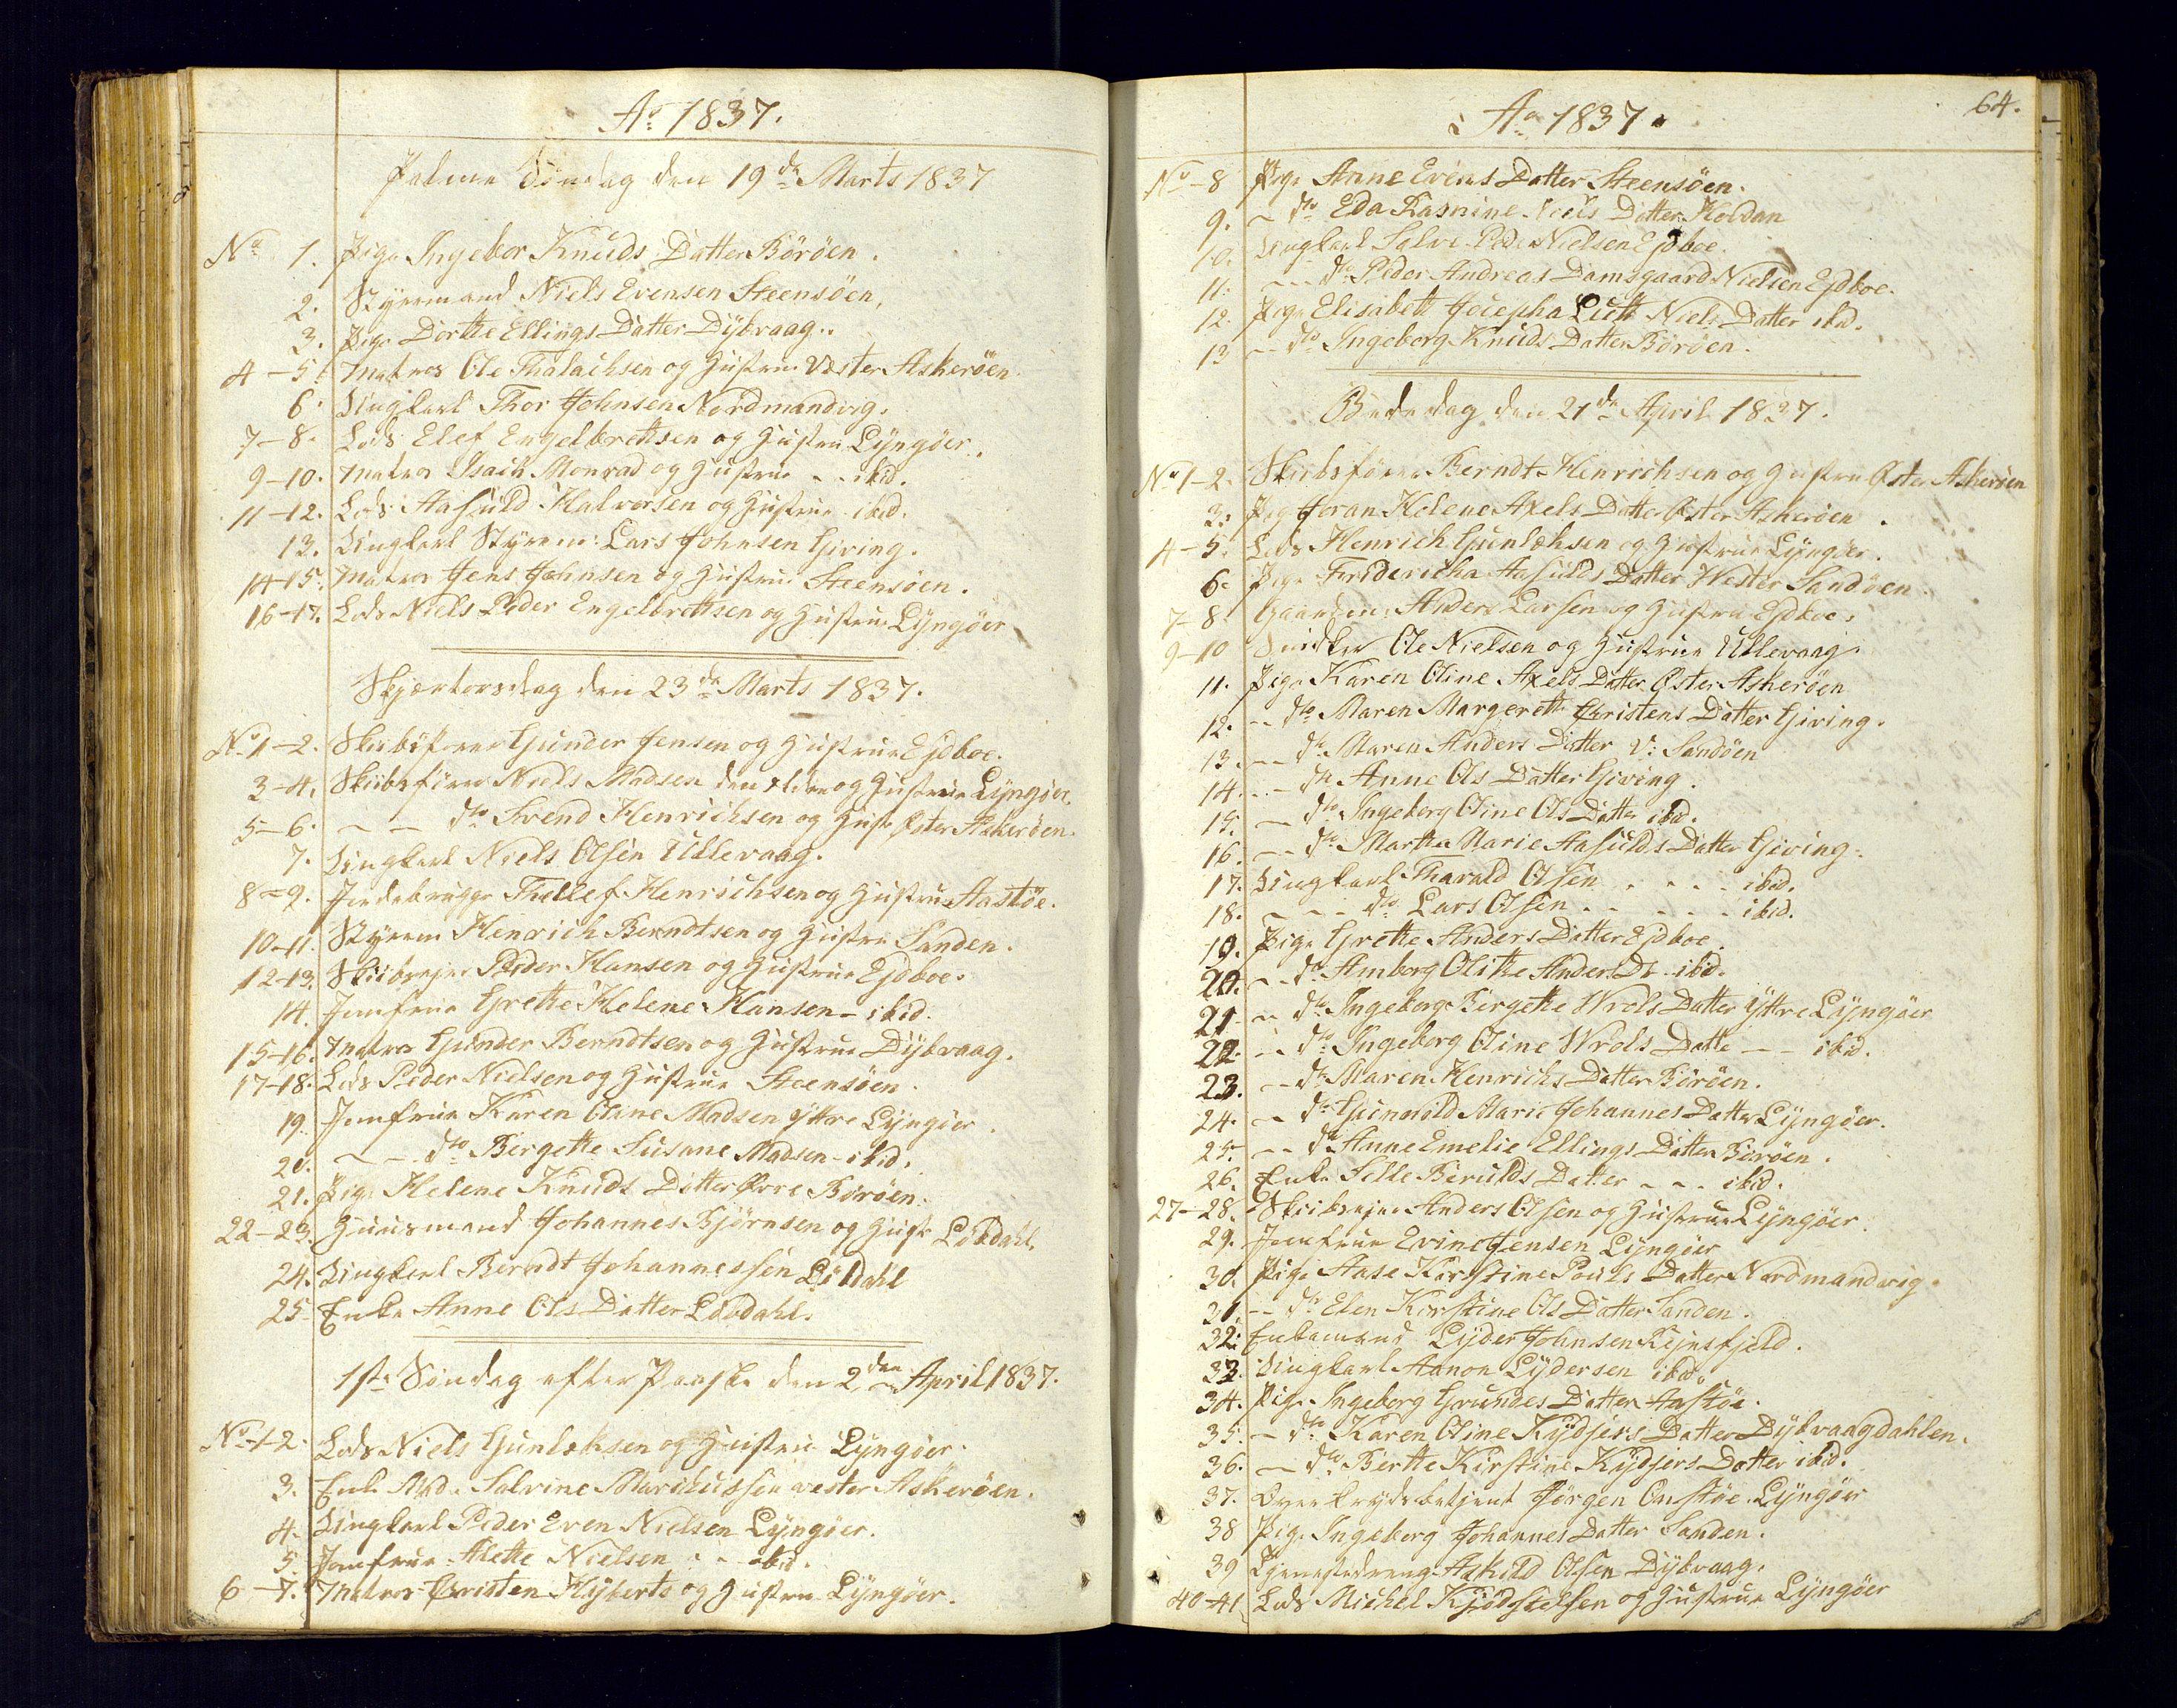 Ao 1837.
Palme Söndag den 19de Marts 1837
No 1. Pige Ingebor Knuds Datter Börøen.
2. Styrmand Niels Evensen Steensöen,
3. Pige Dorthe Ellings Datter Dÿbvaag..
4-5. Matros Ole Thalachsen og Hustrue Vester Askeröen.
6. Ungkarl Thor Johnsen Nordmandvig.
7-8. Lods Elef Engelbrethsen og Hustrue Lÿngöer.
9-10. Matros Isach Monrad og Hustrue - - ibid.
11-12. Lods Aasuld Halvorsen og Hustrue ibid.
13. Ungkarl Styrm: Lars Johnsen Giving.
14-15. Matros Jens Johnsen og Hustrue Steensöen.
16-17. Lods Niels Peder Engelbrethsen og Hustrue Lÿngöer
Skjærtorsdag den 23de Marts 1837.
No 1-2. Skibsförer Gunder Jensen og Hustrue Ejdboe.
3-4. Skibsförer Niels Madsen den ældre og Hustrue Lÿngöer.
5-6. - - dto Svend Henrichsen og Hustr Øster Askeröen.
7. Ungkarl Niels Olsen Ullevaag.
8=9. Jordebruger Thellef Henrichsen og Hustrue Aastöe.
10-11. Styrm Henrich Berndtsen og Hustru Sanden.
12-13. Skibsejer Peder Hansen og Hustrue Ejdboe.
14. Jomfrue Grethe Helene Hansen - ibid.
15-16. Matros Gunder Berndtsen og Hustrue Dÿbvaag.
17-18. Lods Peder Nielsen og Hustrue Steensöen.
19. Jomfrue Karen Oline Madsen ÿttre Lÿngöer.
20. - - dto Birgethe Susane Madsen - ibid.
21. Pige Helene Knuds Datter Övre Börøen.
22-23. Huusmand Johannes Bjørnsen og Hustr Lövdahl.
24. Ungkarl Berndt Johannessen Lövdahl
25 Enke Anne Ols Datter Lövdahl.
1ste Söndag efter Paaske den 2den April 1837.
No 1-2. Lods Niels Gunlæksen og Hustrue Lÿngöer.
3. Enke Mad. Salvine Marchussen vester Askeröen.
4. Ungkarl Peder Even Nielsen Lÿngöer.
5 Jomfrue Alethe Nielsen - - ibid.
6-7. Matros Christen Hÿberts og Hustrue Lÿngöer.
64.
Ao 1837.
No 8 Pige Anne Evens Datter Steensöen.
9. - dto Eda Rasmine Niels Datter Holdan
10. Ungkarl Salve Peder Nielsen Ejdboe.
11. - - dto Peder Andreas Damsgaard Nielsen Ejdboe.
12. Pige Elisabeth Josepha Niels Datter ibid.
13 - - dto Ingeborg Knuds Datter Börøen.
Bededag den 21de April 1837.
No 1-2. Skibsförer Berndt Henrichsen og Hustrue Øster Askeröen
3. Pige Joran Helene Axels Datter Øster Askeröen.
4-5. Lods Henrich Gunlæksen og Hustrue Lÿngöer.
6. Pige Fridericha Aasulds Datter Wester Sandöen.
7-8. Gaardm: Anders Larsen og Hustru Ejdboe.
9-10 Ole Nielsen og Hustrue Ullevaag.
11. Pige Karen Oline Axels Datter Øster Askeröen
12. - - dto Maren Margerethe Christens Datter Giving.
13. - - dto Maren Anders Datter V: Sandöen
14. - - dto Anne Ols Datter Giving.
15. - dto Ingeborg Oline Ols Datter ibid.
16. - - dto Marthe Marie Aasulds Datter Giving.
17. Ungkarl Tharald Olsen . . . . ibid.
18. - - - dto Lars Olsen . . . . . ibid.
19. Pige Grethe Anders Datter Ejdboe.
20. - - dto Amborg Olithe Anders Dr. ibid.
21 - - dto Ingeborg Birgethe Wrols Datter ÿttre Lÿngöer
22. - - dto Ingeborg Oline Wrols Datte - - ibid.
23. - - dto Maren Henrichs Datter Börøen.
24. - dto Gunvold Marie Johannes Datter Lÿngöer.
25. - - dto Anne Emelie Ellings Datter Börøen.
26. Enke Sille Berulds Datter - - - ibid.
27-28. Skibsejer Anders Olsen og Hustrue Lÿngöer.
29. Jomfrue Evine Jensen Lÿngöer
30. Pige Aase Kirstine Pouls Datter Nordmandvig.
31. - - dto Elen Kirstine Ols Datter Sanden.
32. Enkemand Lÿder Johnsen Rejersfjeld.
33. Ungkarl Aanon Lÿdersen ibid.
34. Pige Ingeborg Gunders Datter Aastöe.
35. - dto Karen Oline Kÿdsers Datter Dÿbvaagdahlen.
36. - dto Berthe Kirstine Kÿdsers Datter ibid.
37. Overkrydsbetjent Jörgen Lÿngöer
38 Pige Ingeborg Johannes Datter Sanden.
39 Tjenestedreng Askild Olsen Dÿbvaag.
40-41 Lods Michel Kjödskelsen og Hustrue Lÿngöer